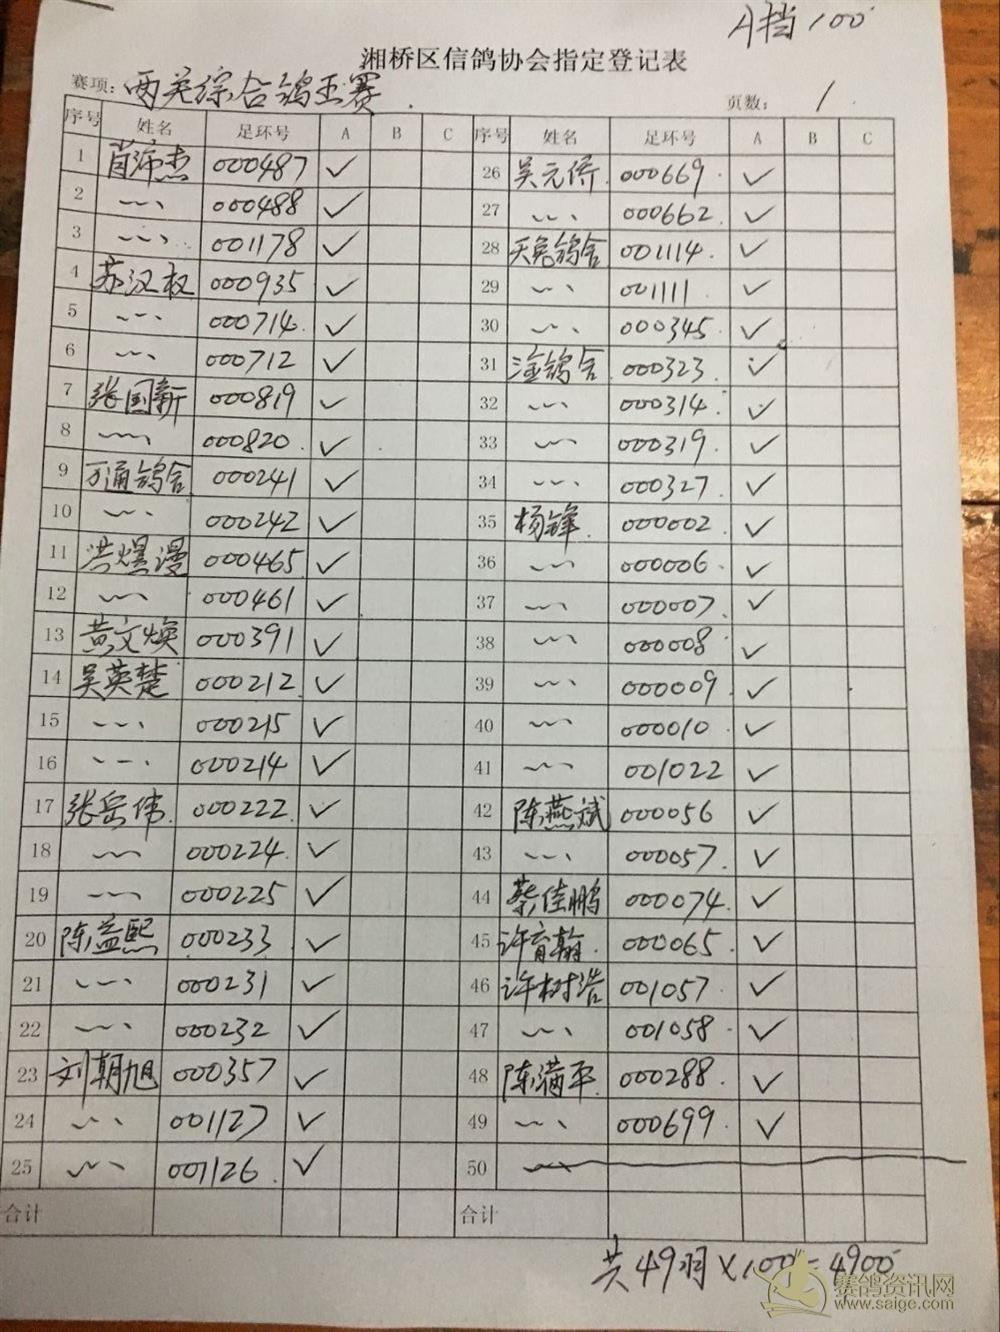 A挡100
湘桥区信鸽协会指定登记表
赛项：两英综合鸽王赛.
页数： 1
序号 姓名 足环号 A B C 序号 姓名 足环号 A B C
1 肖沛杰 000487 ✓ 26 吴元侨 000669 ✓
2 〃 000488 ✓ 27 〃 000662 ✓
3 〃 001178 ✓ 28 天兔鸽舍 001114 ✓
4 苏汉权 000935 ✓ 29 〃 001111 ✓
5 〃 000714 ✓ 30 〃 000345 ✓
6 〃 000712 ✓ 31 淦鸽舍 000323 ✓
7 张国新 000819 ✓ 32 〃 000314 ✓
8 〃 000820 ✓ 33 〃 000319 ✓
9 万通鸽舍 000241 ✓ 34 〃 000327 ✓
10 〃 000242 ✓ 35 杨锋 000002 ✓
11 洪 000465 ✓ 36 〃 000006 ✓
12 〃 000461 ✓ 37 〃 000007 ✓
13 黄文焕 000391 ✓ 38 〃 000008 ✓
14 吴英楚 000212 ✓ 39 〃 000009 ✓
15 〃 000215 ✓ 40 〃 000010 ✓
16 〃 000214 ✓ 41 〃 001022 ✓
17 张岳伟 000222 ✓ 42 陈燕斌 000056 ✓
18 〃 000224 ✓ 43 〃 000057 ✓
19 〃 000225 ✓ 44 蔡佳鹏 000074 ✓
20 陈益熙 000233 ✓ 45 许育翰 000065 ✓
21 〃 000231 ✓ 46 许树浩 001057 ✓
22 〃 000232 ✓ 47 〃 001058 ✓
23 刘朝旭 000357 ✓ 48 陈满平 000288 ✓
24 〃 001127 ✓ 49 〃 000699 ✓
25 〃 001126 ✓ 50
合计 合计
共49羽×100=4900
赛鸽资讯网
www.saige.com